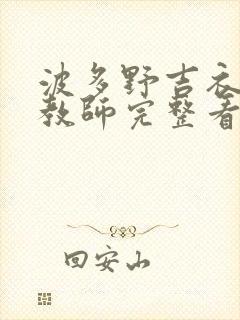 波多野吉衣
教师完整看
回安山